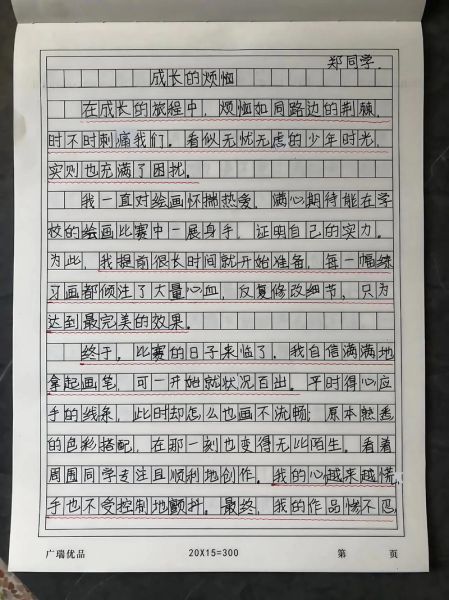 郑同学.
成长的烦恼
在成长的旅程中，烦恼如同路边的荆棘，
时不时刺痛我们。看似无忧无虑的少年时光，
实则也充满了困扰。
我一直对绘画怀揣热爱。满心期待能在学
校的绘画比赛中一展身手，证明自己的实力。
为此，我提前很长时间就开始准备，每一幅练
习画都倾注了大量心血，反复修改细节，只为
达到最完美的效果。
终于，比赛的日子来临了，我自信满满地
拿起画笔，可一开始就状况百出。平时得心应
手的线条，此时却怎么也画不流畅；原本熟悉
的色彩搭配，在那一刻也变得无比陌生。看着
周围同学专注且顺利地创作，我的心越来越慌，
手也不受控制地颤抖。最终，我的作品惨不忍
广瑞优品 20X15=300 第 页